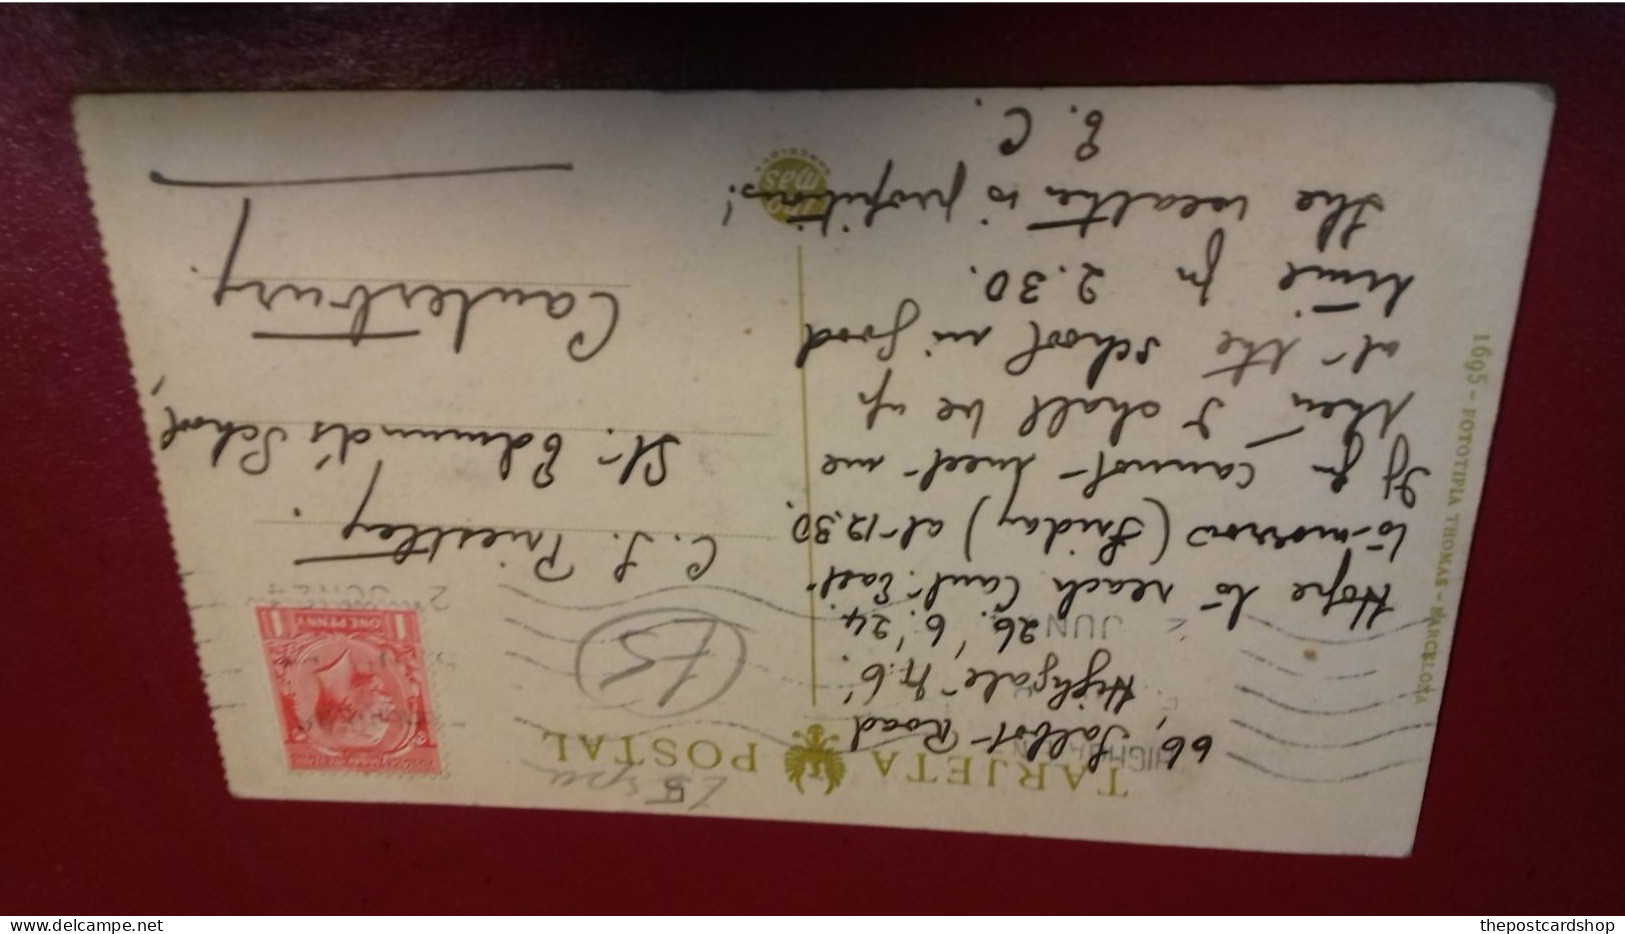 TARJETA POSTAL
66, Talbot Road
Highgate N.6.
26.6.'24.
Hope to reach Cant. East
to-morrow (Friday) at 12.30.
If you cannot meet me
then I shall be up
at the school in good
time for 2.30.
The weather is propitious!
E. C.
C. J. Priestley.
St. Edmund's School,
Canterbury.
15
ONE PENNY
JUN
1695 - FOTOTIPIA THOMAS - BARCELONA
thepostcardshop